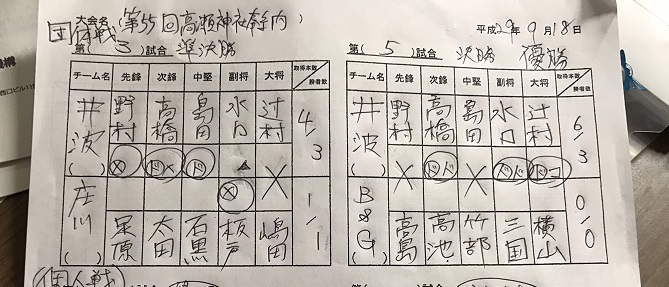 団体戦
大会名(第55回高瀬神社奉納)
平成29年9月18日
第(3)試合 準決勝
チーム名 先鋒 次鋒 中堅 副将 大将 取得本数 勝者数
井波 野村 高橋 島田 水口 辻村 4/3
( ) メ ドメ ド ▲ ×
庄川 メ 1/1
( ) 栗原 太田 石黒 板戸 嶋田
第(5)試合 決勝 優勝
チーム名 先鋒 次鋒 中堅 副将 大将 取得本数 勝者数
井波 野村 高橋 島田 水口 辻村 6/3
( ) × ドド × ドド ドコ
B&G 0/0
( ) 高島 高池 竹部 三国 横山
個人戦
西口ビル11